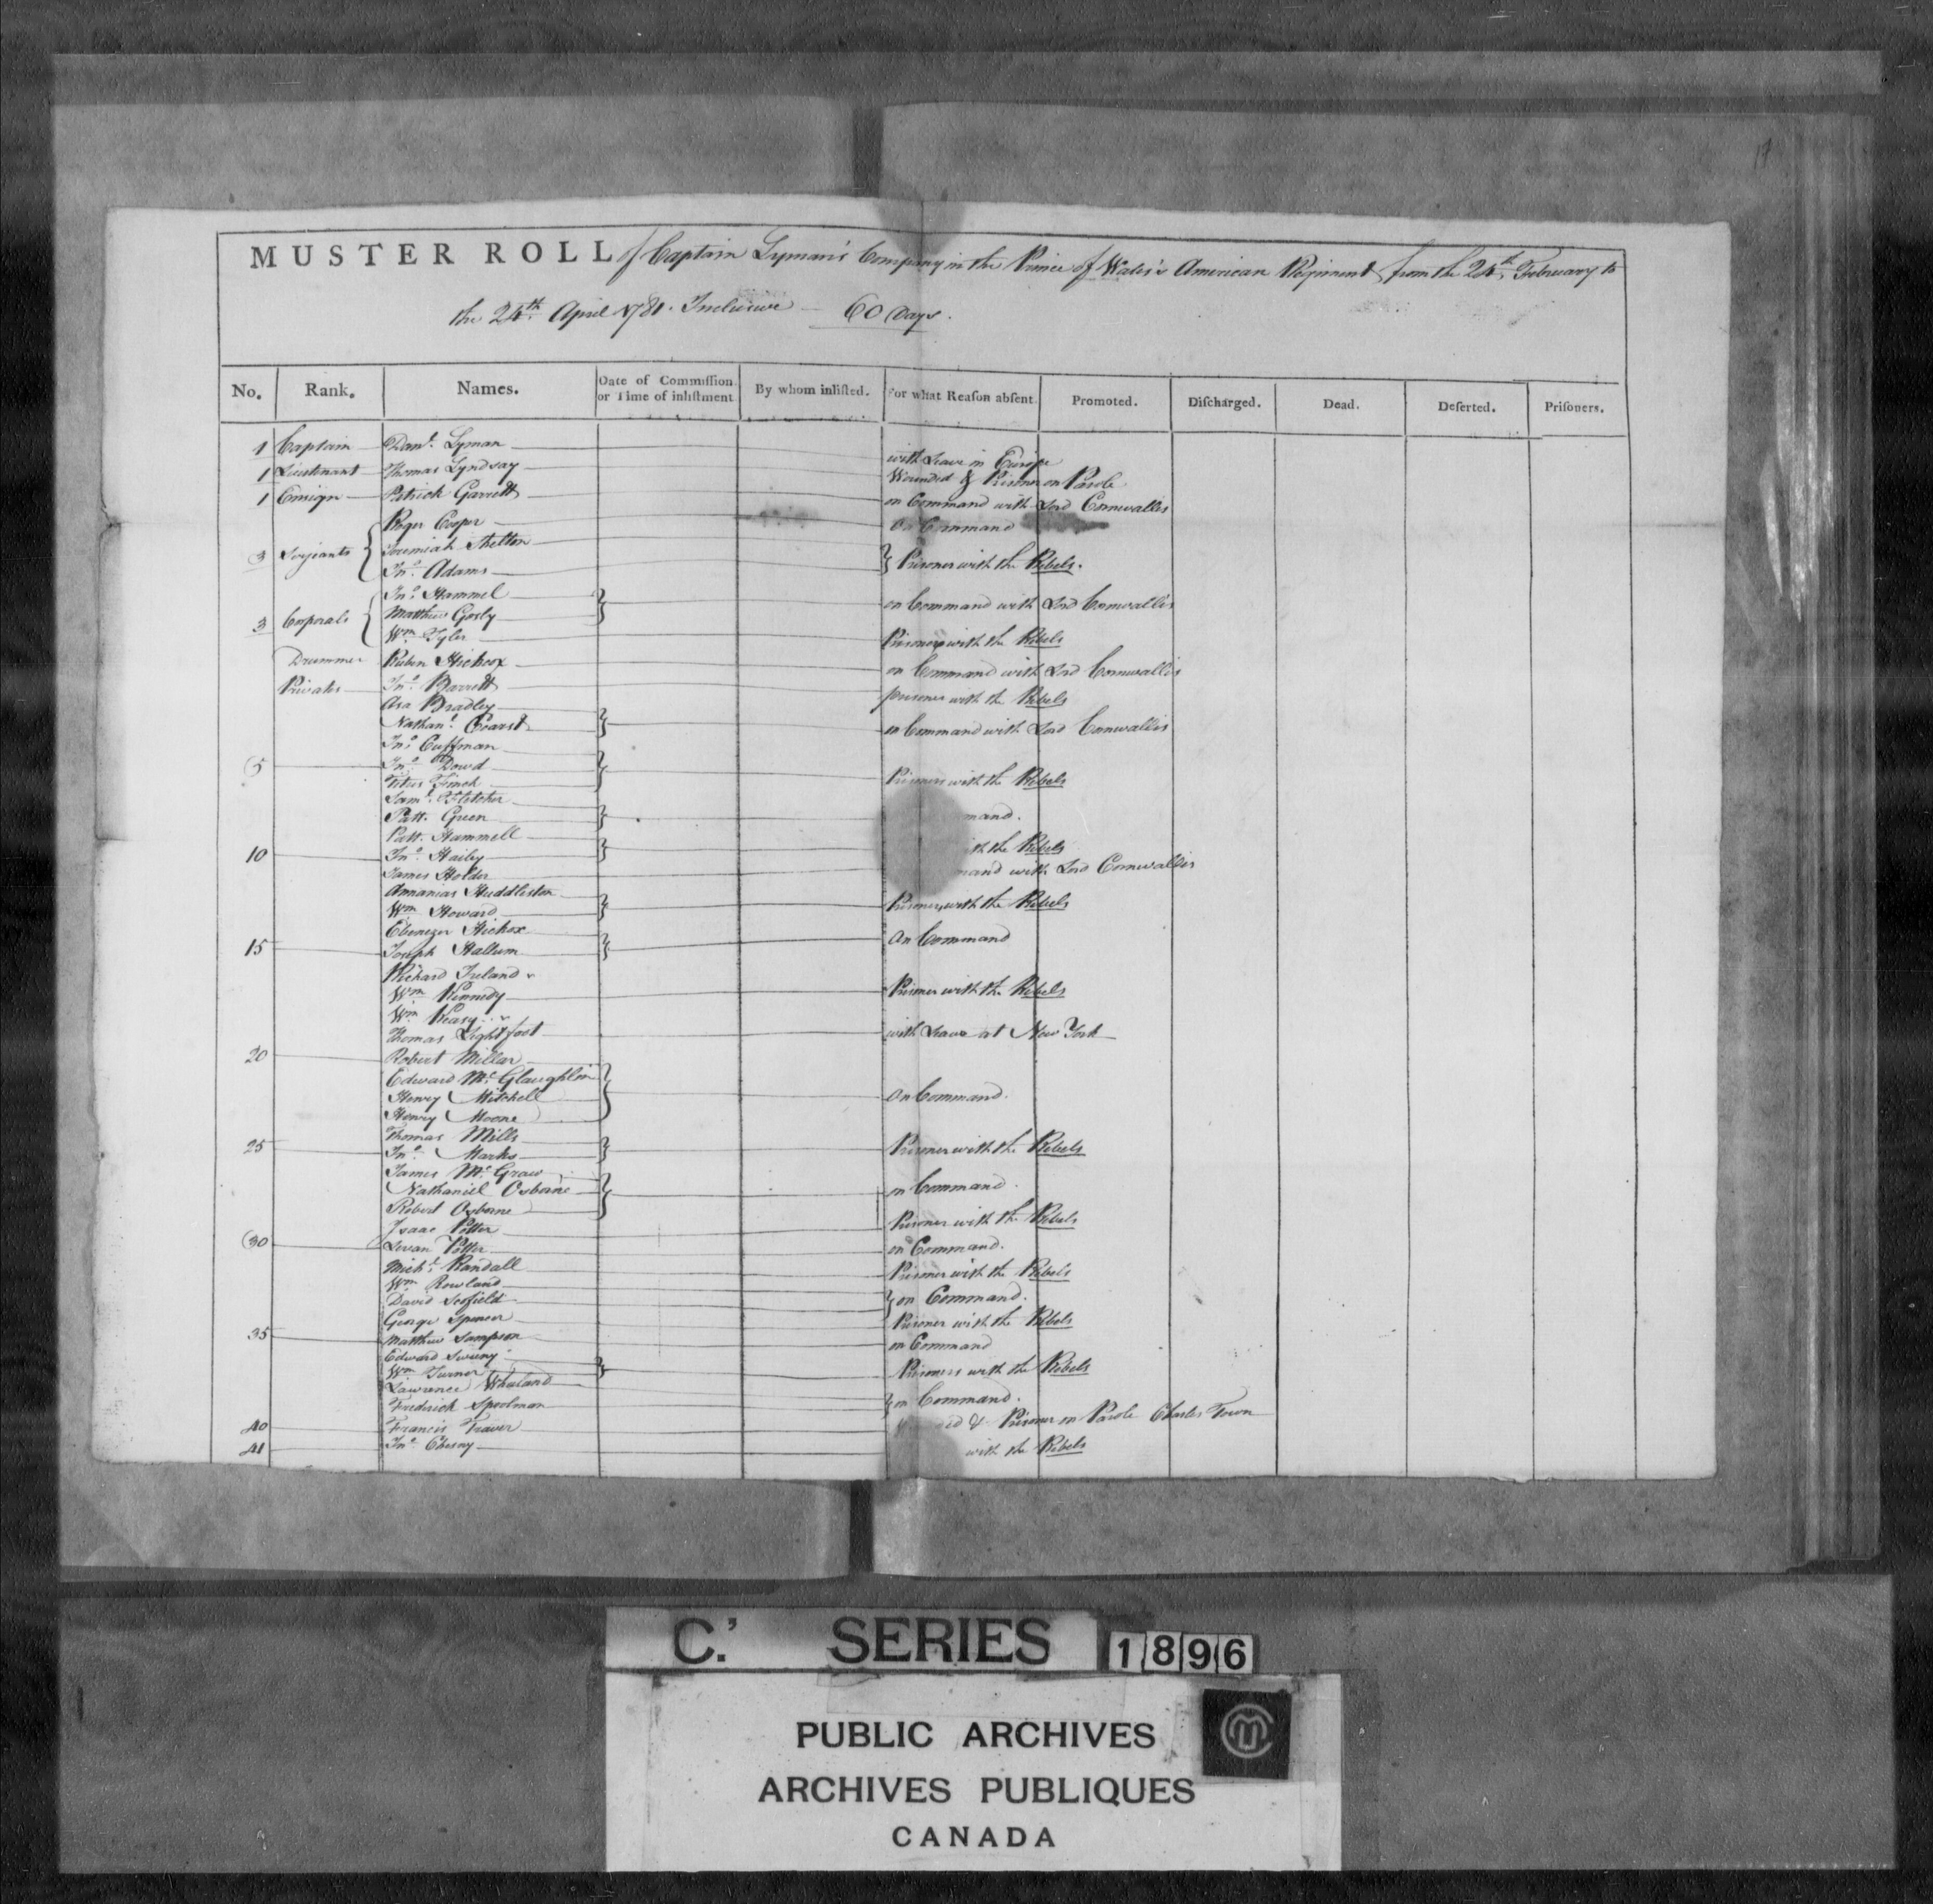 17
MUSTER ROLL of Captain Lyman's Company in the Prince of Wales's American Regiment from the 24th February to
the 24th April 1781. Inclusive — 60 Days.
No. Rank. Names. Date of Commission or Time of inlistment By whom inlisted. For what Reason absent Promoted. Discharged. Dead. Deserted. Prisoners.
1 Captain Danl. Lyman with Leave in Europe
1 Lieutenant Thomas Lyndsay Wounded & Prisoner on Parole
1 Ensign Patrick Garrett on Command with Lord Cornwallis
Roger Cooper On Command
3 Serjeants { Jeremiah Shelton
Jno. Adams } Prisoner with the Rebels.
Jno. Hammel
3 Corporals { Matthew Gosly } on Command with Lord Cornwallis
Wm. Tyler Prisoner with the Rebels
Drummer Ruben Hickox on Command with Lord Cornwallis
Privates Jno. Barrett prisoner with the Rebels
Asa Bradley
Nathanl. } on Command with Lord Cornwallis
Jno. Cuffman
5 Jno. Dowd
Titus Finch } Prisoners with the Rebels
Saml. Fletcher
Patt. Green } mand.
Patt. Hammell
10 Jno. Hailey } ith the Rebels
James Holder mand with Lord Cornwallis
Annanias Huddleston
Wm. Howard } Prisoners with the Rebels
Ebenezer Hickox
15 Joseph Hallum } On Command
Richard Ireland
Wm. Kennedy Prisoner with the Rebels
Wm.
Thomas Lightfoot with Leave at New York
20 Robert Millar
Edward McGlaughlin
Henry Mitchell } On Command.
Henry Moone
Thomas Mills
25 Jno. Marks } Prisoner with the Rebels
James McGraw
Nathaniel Osborne } on Command.
Robert Osborne
Isaac Potter Prisoner with the Rebels
30 Potter on Command.
Michl. Randall Prisoner with the Rebels
Wm. Rowland
David Scofield } on Command.
George Spencer Prisoner with the Rebels
35 Matthew Sampson on Command
Edward Swiny
Wm. Turner } Prisoners with the Rebels
Lawrence
Frederick Spoolman } on Command.
40 Francis Traver & Prisoner on Parole Charles Town
41 Jno. with the Rebels
C.' SERIES 1896
PUBLIC ARCHIVES
ARCHIVES PUBLIQUES
CANADA